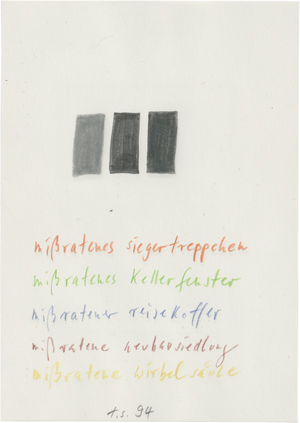 mißratenes siegertreppchen
mißratenes Kellerfenster
mißratener reisekoffer
mißratene neubausiedlung
mißratene wirbelsäule
t.s. 94